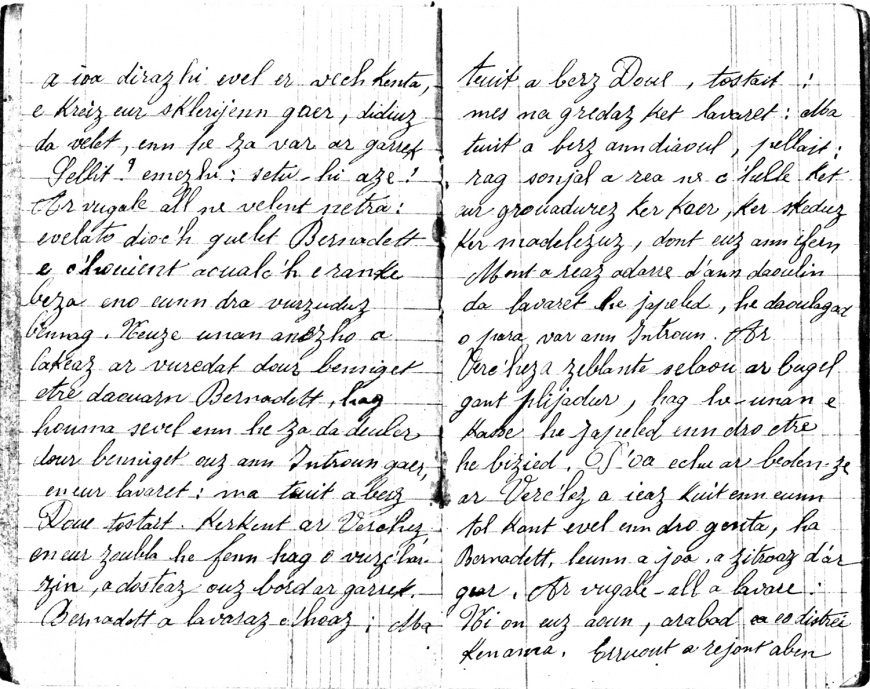 a ioa dirazhi evel er vech kenta,
e kreiz eur sklerijenn gaer, didiuz
da velet, enn he za var ar garrek
Sellit ! emezhi : setu-hi aze !
Ar vugale all ne velent netra :
evelato dioc'h guelet Bernadett
e c'houient acualc'h e ranke
beza eno eunn dra vurzuduz
bennag. Neuze unan anezho a
lakeaz ar vuredat dour benniget
etre daouarn Bernadett, hag
houma sevel enn he za da deuler
dour benniget ouz ann Introun gaer,
en eur lavaret : ma tuit a berz
Doue tostait. Kerkent ar Verc'hez
en eur zoubla he fenn hag o vuzc'hoar-
zin, a dosteaz ouz bord ar garrek.
Bernadett a lavaraz c'hoaz ; Ma
tuit a berz Doue, tostait ;
mes na gredaz ket lavaret : Ma
tuit a berz ann diaoul, pellait ;
rag sonjal a rea ne c'helle ket
eur grouadurez ker kaer, ker skeduz
ker madelezuz, dont euz ann ifern
Mont a reaz adarre d'ann daoulin
da lavaret he japeled, he daoulagad
o para var ann Introun. Ar
Verc'hez a zeblante selaou ar bugel
gant plijadur, hag he-unan e
kasse he japeled enn dro etre
he biziad. P'oa echu ar beden-ze
ar Verc'hez a ieaz kuit enn eunn
tol kont evel enn dro genta, ha
Bernadett, leunn a joa, a zitroaz d'ar
guer. Ar vugale-all a lavare :
Ni on euz aoun, arabad eo distrei
kenama. Erruout a rejont aben